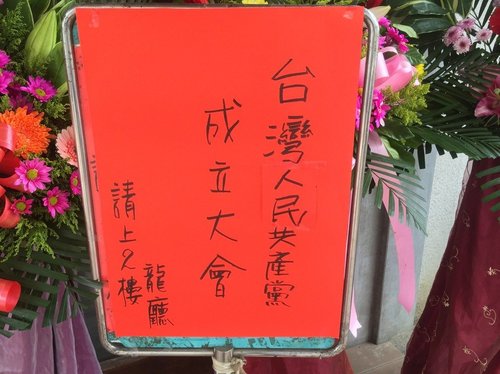 台灣人民共產黨
成立大會
請上2樓
龍廳